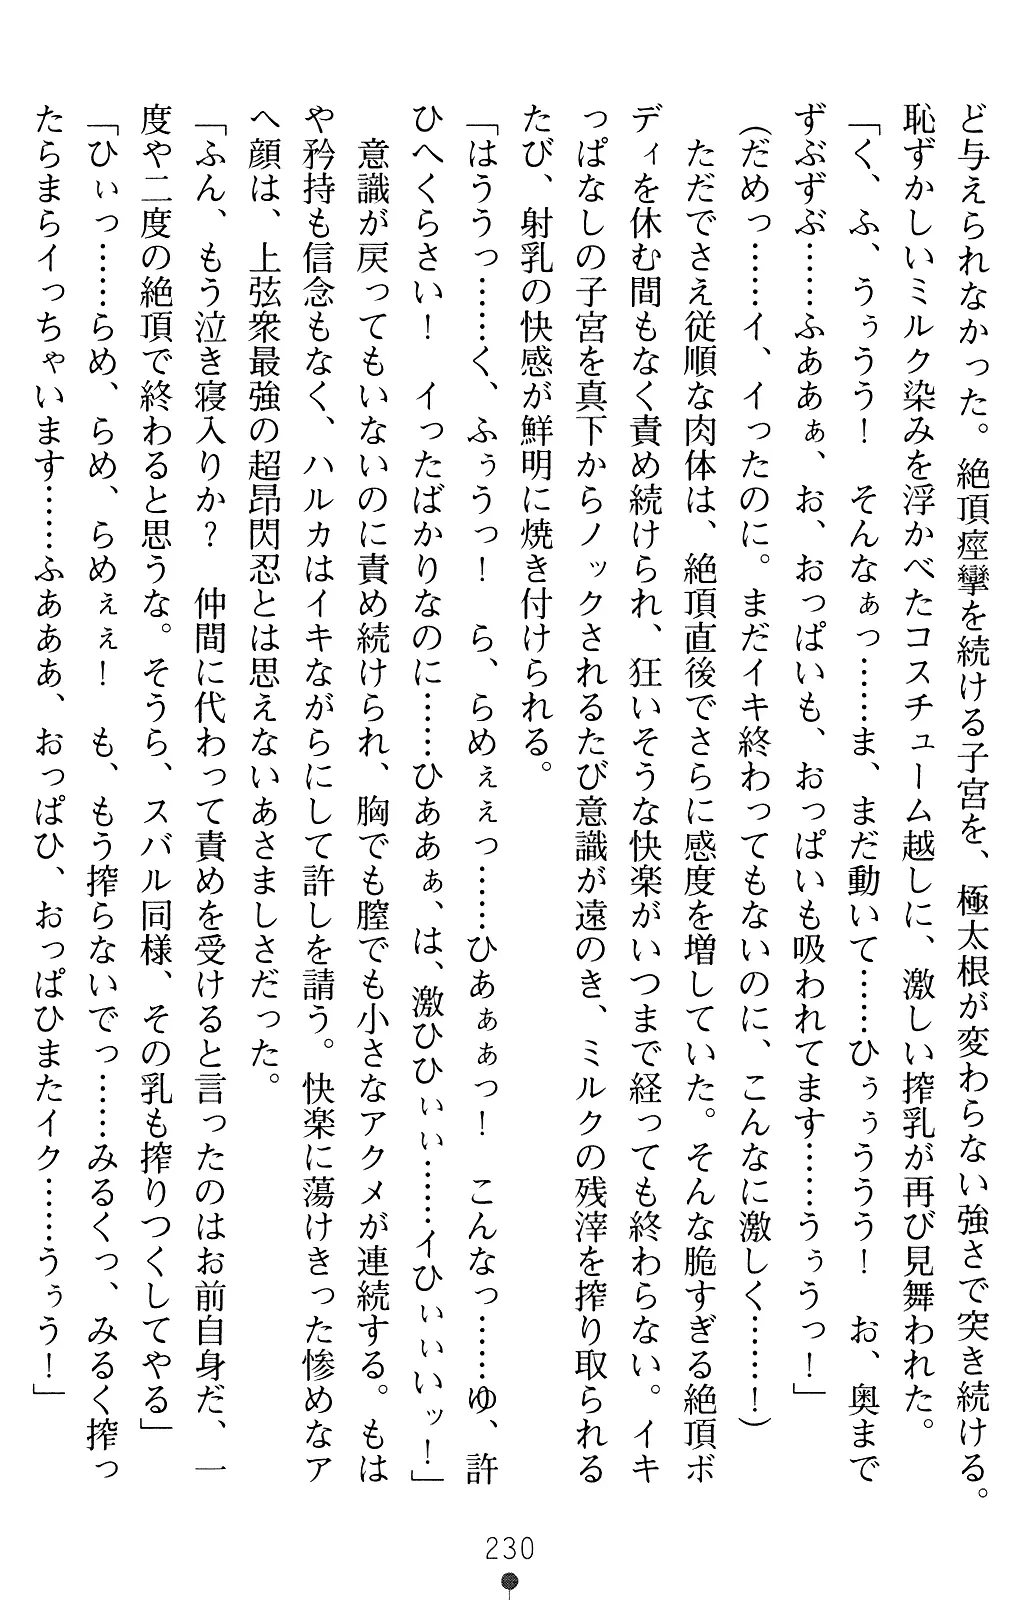 ど与えられなかった。絶頂痙攣を続ける子宮を、極太根が変わらない強さで突き続ける。
恥ずかしいミルク染みを浮かべたコスチューム越しに、激しい搾乳が再び見舞われた。
「く、ふ、うぅうう！　そんなぁっ……ま、まだ動いて……ひぅぅううう！　お、奥まで
ずぶずぶ……ふああぁ、お、おっぱいも、おっぱいも吸われてます……うぅうっ！」
（だめっ……イ、イったのに。まだイキ終わってもないのに、こんなに激しく……！）
　ただでさえ従順な肉体は、絶頂直後でさらに感度を増していた。そんな脆すぎる絶頂ボ
ディを休む間もなく責め続けられ、狂いそうな快楽がいつまで経っても終わらない。イキ
っぱなしの子宮を真下からノックされるたび意識が遠のき、ミルクの残滓を搾り取られる
たび、射乳の快感が鮮明に焼き付けられる。
「はううっ……く、ふぅうっ！　ら、らめぇぇっ……ひあぁぁっ！　こんなっ……ゆ、許
ひへくらさい！　イったばかりなのに……ひああぁ、は、激ひひぃぃ……イひぃぃいッ！」
　意識が戻ってもいないのに責め続けられ、胸でも膣でも小さなアクメが連続する。もは
や矜持も信念もなく、ハルカはイキながらにして許しを請う。快楽に蕩けきった惨めなア
へ顔は、上弦衆最強の超昂閃忍とは思えないあさましさだった。
「ふん、もう泣き寝入りか？　仲間に代わって責めを受けると言ったのはお前自身だ、一
度や二度の絶頂で終わると思うな。そうら、スバル同様、その乳も搾りつくしてやる」
「ひぃっ……らめ、らめ、らめぇぇ！　も、もう搾らないでっ……みるくっ、みるく搾っ
たらまらイっちゃいます……ふあああ、おっぱひ、おっぱひまたイク……うぅう！」
230